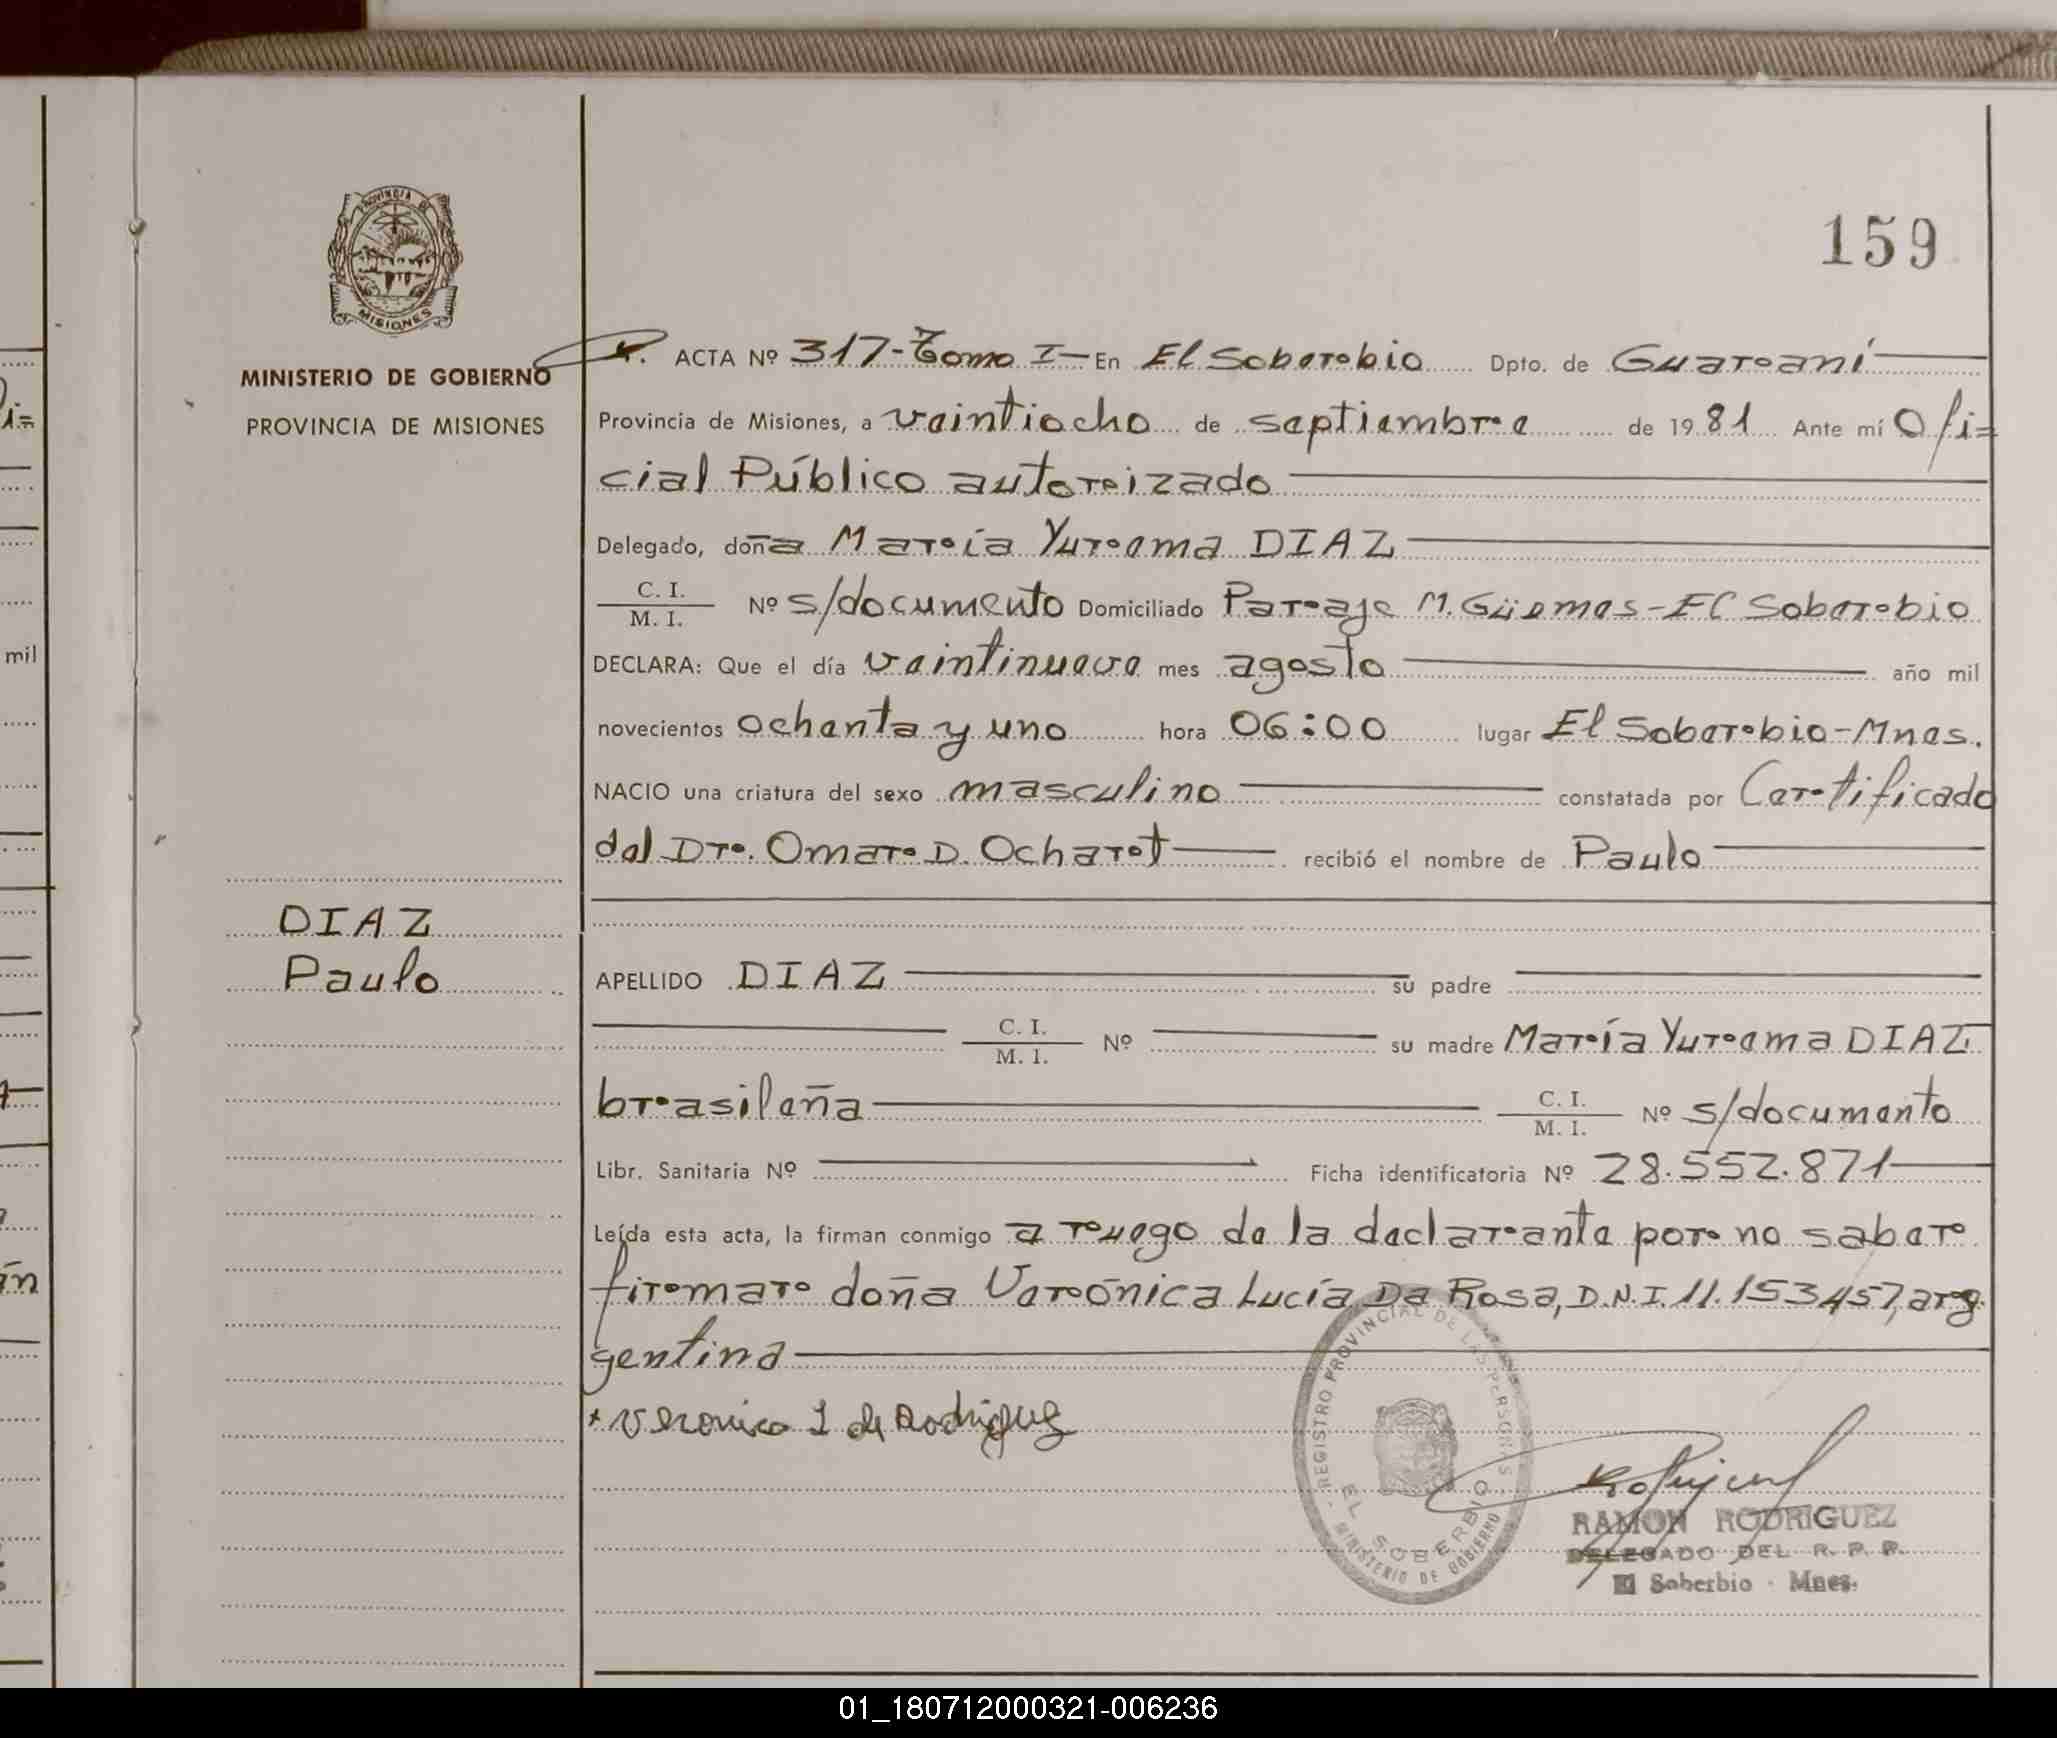 159
PROVINCIA DE
MISIONES
MINISTERIO DE GOBIERNO
PROVINCIA DE MISIONES
ACTA Nº 317-Tomo I- En El Soberbio Dpto. de Guaraní
Provincia de Misiones, a veintiocho de septiembre de 1981 Ante mí Ofi=
cial Público autorizado
Delegado, doña María Yurema DIAZ
C. I.
M. I. Nº s/documento Domiciliado Paraje M. Güemes-El Soberbio
DECLARA: Que el día veintinueve mes agosto año mil
novecientos ochenta y uno hora 06:00 lugar El Soberbio-Mnes.
NACIO una criatura del sexo masculino constatada por Certificado
del Dr. Omar D. Ochart recibió el nombre de Paulo
DIAZ
Paulo
APELLIDO DIAZ su padre
C. I.
M. I. Nº su madre María Yurema DIAZ
brasileña C. I.
M. I. Nº s/documento
Libr. Sanitaria Nº Ficha identificatoria Nº 28.552.871
Leída esta acta, la firman conmigo a ruego de la declarante por no saber
firmar doña Verónica Lucía Da Rosa, D.N.I. 11.153457, arg
gentina
Veronica L de Rodriguez
REGISTRO PROVINCIAL DE LAS PERSONAS
EL SOBERBIO
MINISTERIO DE GOBIERNO
RAMON RODRIGUEZ
DELEGADO DEL R. P. P.
El Soberbio - Mnes.
mil
01_180712000321-006236